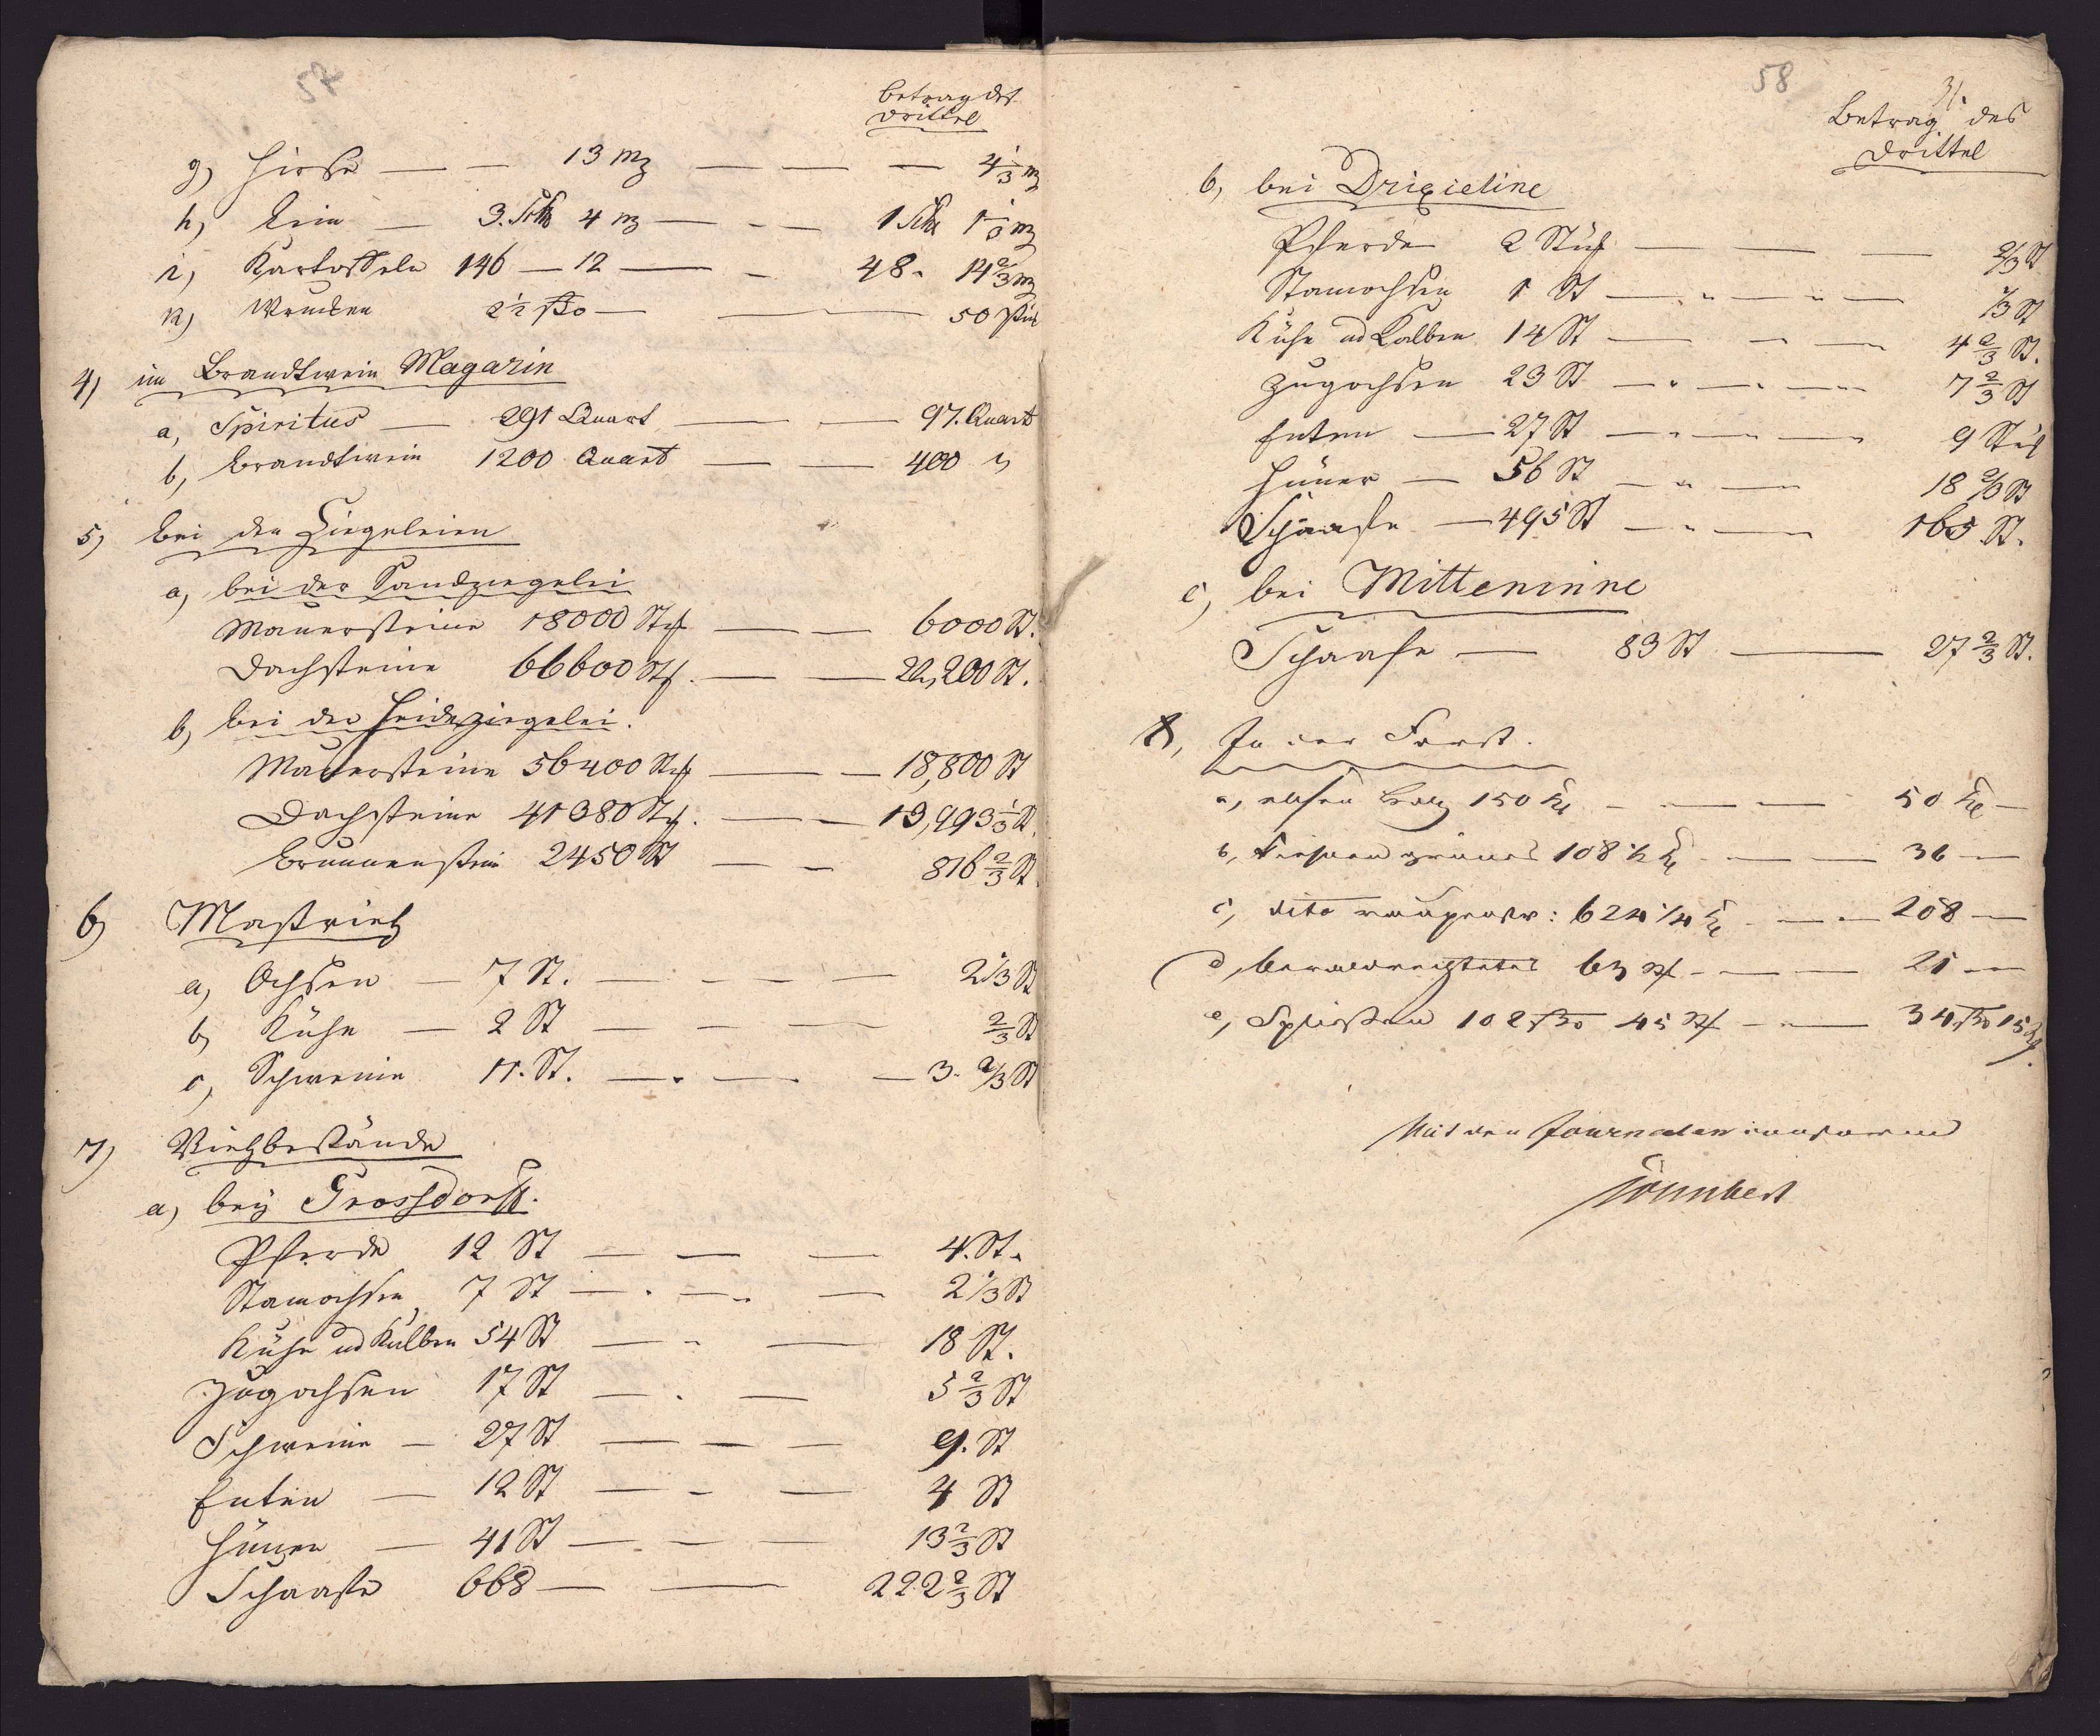 57
Betrag des
Drittel
g) Hirse — — 13 Mz — — — 4 1/3 Mz
h) Lein — 3. Schfl 4 Mz — - — 1 Schfl 1 1/3 Mz
i) Kartoffeln 146 — 12 — - 48 - 14 2/3 Mz
k) Wrucken 2 1/2 Sch — — 50 Stück
4) im Brandtwein Magazin
a, Spiritus — 291 Quart — — 97. Quart
b, Brandtwein 1200 Quart — — 400 "
5) bei den Ziegeleien
a, bei der Sandziegelei
Mauersteine 18000 Stk — — 6000 St.
Dachsteine 66600 Stk. — — 22,200 St.
b, bei der Heideziegelei.
Mauersteine 56400 Stk — — 18,800 St
Dachsteine 41380 Stk. — — 13,793 1/3 St.
Brunnenstein 2450 St — — 816 2/3 St.
6) Mastvieh
a, Ochsen — 7 St. — — — 2 1/3 St
b, Kühe — 2 St — — — 2/3 St
c, Schweine 11. St. — . — . — 3. 2/3 St
7) Viehbestände
a, bey Grossdorff.
Pferde 12 St — — — 4. St.
Stamochsen 7 St — . — . — 2 1/3 St
Kühe ud Kalben 54 St — - — 18 St.
Zugochsen 17 St — . — 5 2/3 St
Schweine — 27 St — — — 9. St
Enten — 12 St — - — 4 St
Hüner — 41 St — . — — 13 2/3 St
Schaafe 668 — — 222 2/3 St
58
31.
Betrag des
Drittel
b, bei Drixieline
Pferde 2 Stük — — — 2/3 St
Stamochsen 1 St — " — " — 1/3 St
Kühe ud Kalben 14 St — — — 4 2/3 St.
Zugochsen 23 St — . — . — 7 2/3 St
Enten — 27 St — — — 9 Stük
Hüner — 56 St — " — 18 2/3 St
Schaafe — 495 St — " — 165 St.
c, bei Mitteninne
Schaafe — 83 St — 27 2/3 St.
8, In der Forst.
a, elsen Holz 150 Kl - — — 50 Kl —
b, Kiefern grünes 108 1/2 Kl — — 36 —
c, dito 624 1/4 Kl — — 208 —
d, 63 St - — — 21 —
e, Splissen 102 Sch 45 St - — 34 Sch 15 St.
Mit den Journalen